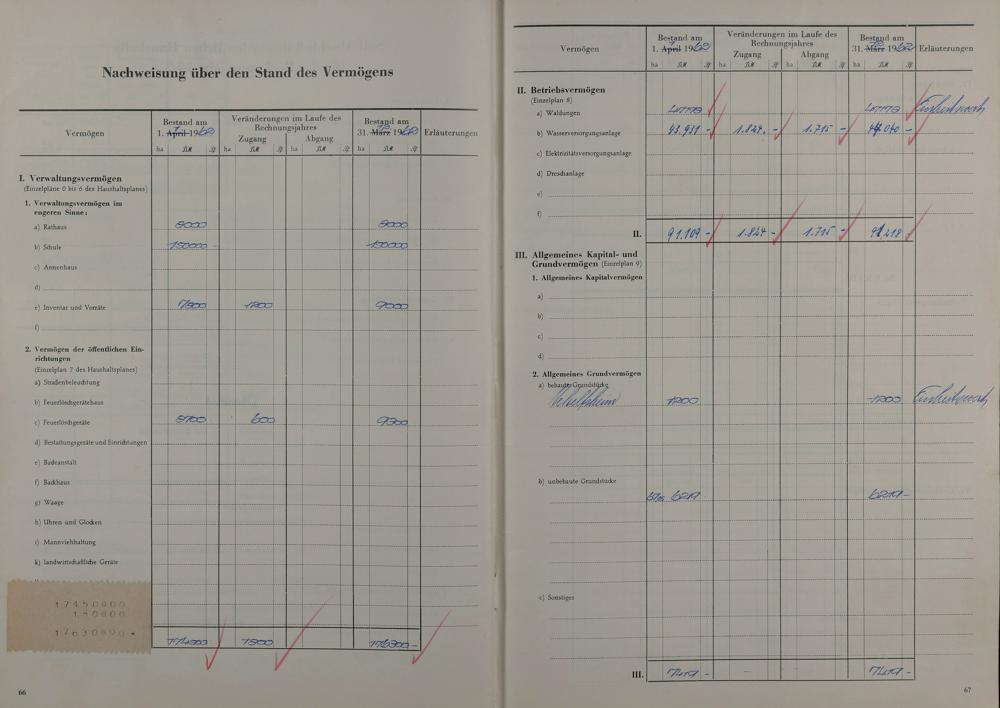 Nachweisung über den Stand des Vermögens
Vermögen
Bestand am
1. April 1962
Veränderungen im Laufe des
Rechnungsjahres
Zugang Abgang
Bestand am
31. März 1962
Erläuterungen
ha DM Pf ha DM Pf ha DM Pf ha DM Pf
I. Verwaltungsvermögen
(Einzelpläne 0 bis 6 des Haushaltsplanes)
1. Verwaltungsvermögen im
engeren Sinne:
a) Rathaus 8000 8000
b) Schule 150000 - 150000
c) Armenhaus
d)
e) Inventar und Vorräte 7800 1200 9000
f)
2. Vermögen der öffentlichen Ein-
richtungen
(Einzelplan 7 des Haushaltsplanes)
a) Straßenbeleuchtung
b) Feuerlöschgerätehaus
c) Feuerlöschgeräte 8700 600 9300
d) Bestattungsgeräte und Einrichtungen
e) Badeanstalt
f) Backhaus
g) Waage
h) Uhren und Glocken
i) Mannviehhaltung
k) landwirtschaftliche Geräte
17450000
180000
17630000 *
174500 1800 176300 -
66
Vermögen
Bestand am
1. April 1962
Veränderungen im Laufe des
Rechnungsjahres
Zugang Abgang
Bestand am
31. März 1962
Erläuterungen
ha DM Pf ha DM Pf ha DM Pf ha DM Pf
II. Betriebsvermögen
(Einzelplan 8)
a) Waldungen 47178 47178 Einheitswert
b) Wasserversorgungsanlage 43.931 - 1.824. - 1.715 - 44.040 -
c) Elektrizitätsversorgungsanlage
d) Dreschanlage
e)
f)
II. 91.109 - 1.824 - 1.715 - 91.218 -
III. Allgemeines Kapital- und
Grundvermögen (Einzelplan 9)
1. Allgemeines Kapitalvermögen
a)
b)
c)
d)
2. Allgemeines Grundvermögen
a) bebaute Grundstücke
1200 1200 Einheitswert
b) unbebaute Grundstücke
6219 6219 -
c) Sonstiges
III. 7419 - - - 7419 -
67